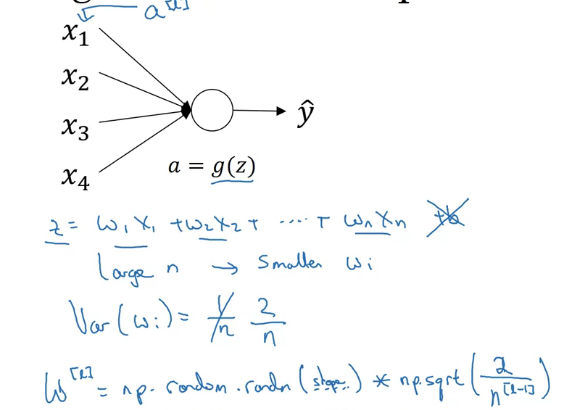 a^[l]
x₁
x₂
x₃
x₄
ŷ
a = g(z)
z = w₁x₁ + w₂x₂ + ..... + wₙxₙ +b
Large n → Smaller wᵢ
Var(wᵢ) = 1/n 2/n
W^[l] = np.random.randn(shape) * np.sqrt(2/n^[l-1])